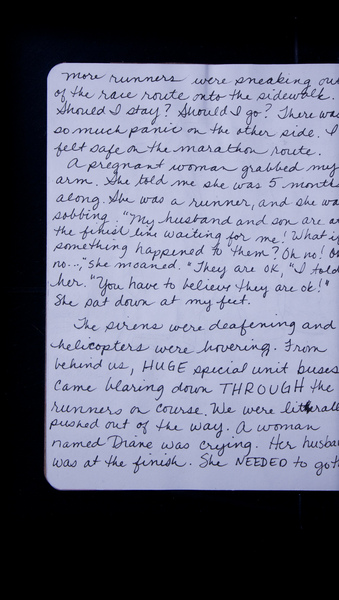 more runners were sneaking out
of the race route onto the sidewalk.
Should I stay? Should I go? There was
so much panic on the other side. I
felt safe on the marathon route.
A pregnant woman grabbed my
arm. She told me she was 5 months
along. She was a runner, and she was
sobbing. "My husband and son are at
the finish line waiting for me! What if
something happened to them? Oh no! Oh
no...," she moaned. "They are OK," I told
her. "You have to believe they are ok!"
She sat down at my feet.
The sirens were deafening and
helicopters were hovering. From
behind us, HUGE special unit buses
came blaring down THROUGH the
runners on course. We were literall
pushed out of the way. A woman
named Diane was crying. Her husba
was at the finish. She NEEDED to get